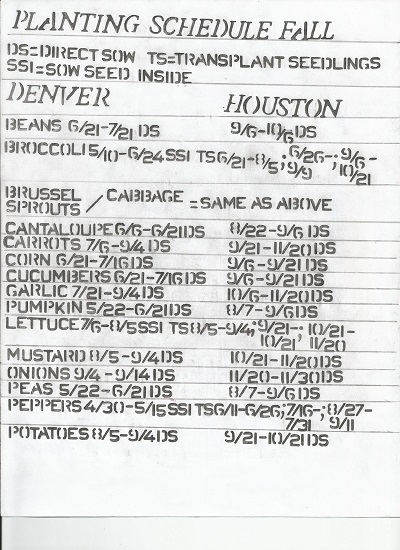 PLANTING SCHEDULE FALL
DS=DIRECT SOW TS=TRANSPLANT SEEDLINGS
SSI=SOW SEED INSIDE
DENVER HOUSTON
BEANS 6/21-7/21 DS 9/6-10/6 DS
BROCCOLI 5/10-6/24 SSI TS 6/21-8/5; 6/26-9/9; 9/6-10/21
BRUSSEL SPROUTS / CABBAGE = SAME AS ABOVE
CANTALOUPE 6/6-6/21 DS 8/22-9/6 DS
CARROTS 7/6-9/4 DS 9/21-11/20 DS
CORN 6/21-7/16 DS 9/6-9/21 DS
CUCUMBERS 6/21-7/16 DS 9/6-9/21 DS
GARLIC 7/21-9/4 DS 10/6-11/20 DS
PUMPKIN 5/22-6/21 DS 8/7-9/6 DS
LETTUCE 7/6-8/5 SSI TS 8/5-9/4; 9/21-10/21; 10/21-11/20
MUSTARD 8/5-9/4 DS 10/21-11/20 DS
ONIONS 9/4-9/14 DS 11/20-11/30 DS
PEAS 5/22-6/21 DS 8/7-9/6 DS
PEPPERS 4/30-5/15 SSI TS 6/11-6/26; 7/16-7/31; 8/27-9/11
POTATOES 8/5-9/4 DS 9/21-10/21 DS